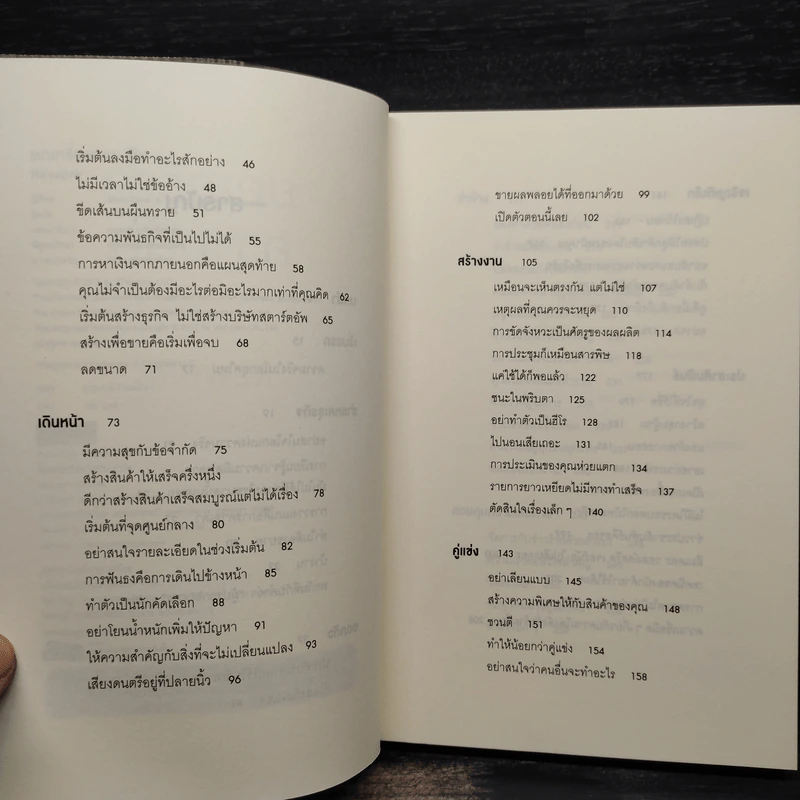 เริ่มต้นลงมือทำอะไรสักอย่าง 46
ไม่มีเวลาไม่ใช่ข้ออ้าง 48
ขีดเส้นบนผืนทราย 51
ข้อความพันธกิจที่เป็นไปไม่ได้ 55
การหาเงินจากภายนอกคือแผนสุดท้าย 58
คุณไม่จำเป็นต้องมีอะไรต่อมิอะไรมากเท่าที่คุณคิด 62
เริ่มต้นสร้างธุรกิจ ไม่ใช่สร้างบริษัทสตาร์ตอัพ 65
สร้างเพื่อขายคือเริ่มเพื่อจบ 68
ลดขนาด 71
เดินหน้า 73
มีความสุขกับข้อจำกัด 75
สร้างสินค้าให้เสร็จครึ่งหนึ่ง
ดีกว่าสร้างสินค้าเสร็จสมบูรณ์แต่ไม่ได้เรื่อง 78
เริ่มต้นที่จุดศูนย์กลาง 80
อย่าสนใจรายละเอียดในช่วงเริ่มต้น 82
การฟันธงคือการเดินไปข้างหน้า 85
ทำตัวเป็นนักคัดเลือก 88
อย่าโยนน้ำหนักเพิ่มให้ปัญหา 91
ให้ความสำคัญกับสิ่งที่จะไม่เปลี่ยนแปลง 93
เสียงดนตรีอยู่ที่ปลายนิ้ว 96
ขายผลพลอยได้ที่ออกมาด้วย 99
เปิดตัวตอนนี้เลย 102
สร้างงาน 105
เหมือนจะเห็นตรงกัน แต่ไม่ใช่ 107
เหตุผลที่คุณควรจะหยุด 110
การขัดจังหวะเป็นศัตรูของผลผลิต 114
การประชุมก็เหมือนสารพิษ 118
แค่ใช้ได้ก็พอแล้ว 122
ชนะในพริบตา 125
อย่าทำตัวเป็นฮีโร่ 128
ไปนอนเสียเถอะ 131
การประเมินของคุณห่วยแตก 134
รายการยาวเหยียดไม่มีทางทำเสร็จ 137
ตัดสินใจเรื่องเล็ก ๆ 140
คู่แข่ง 143
อย่าเลียนแบบ 145
สร้างความพิเศษให้กับสินค้าของคุณ 148
ชวนตี 151
ทำให้น้อยกว่าคู่แข่ง 154
อย่าสนใจว่าคนอื่นจะทำอะไร 158